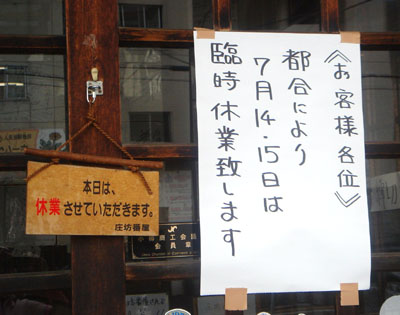 《お客様各位》
都合により
7月14.15日は
臨時休業致します
本日は、
休業させていただきます。
庄坊番屋
会員章